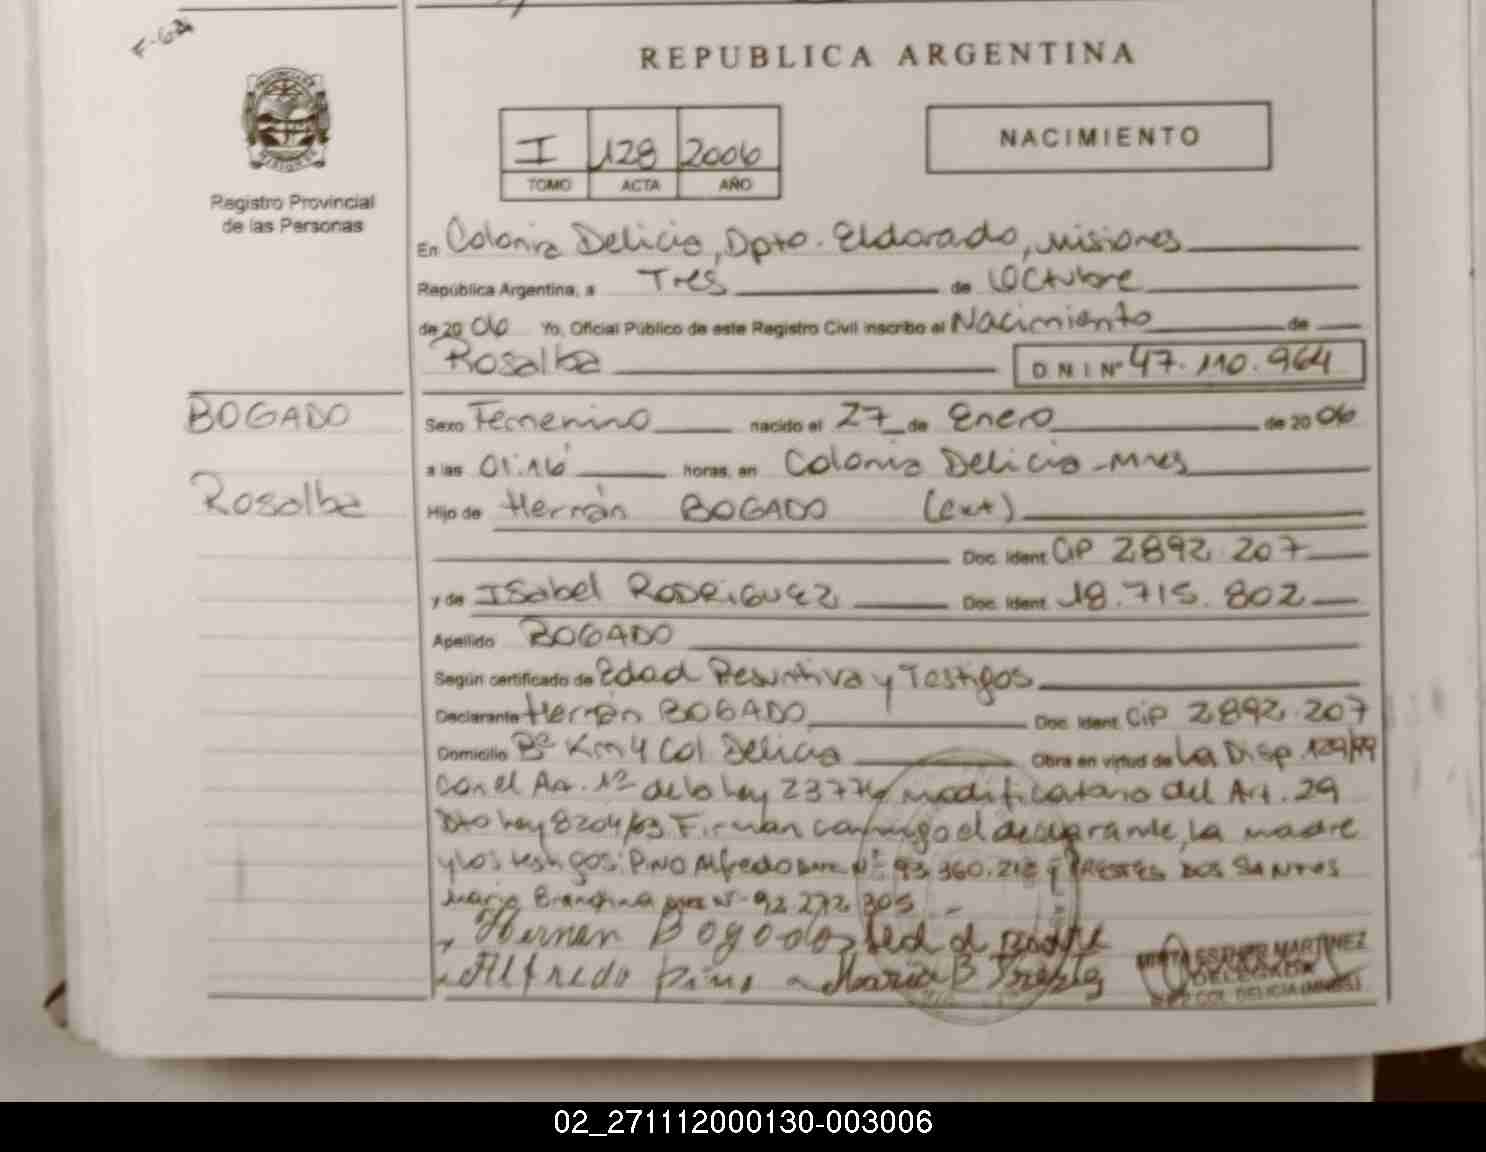 F-64
REPUBLICA ARGENTINA
I 128 2006
TOMO ACTA AÑO
NACIMIENTO
Registro Provincial
de las Personas
En Colonia Delicia, Dpto. Eldorado, Misiones
República Argentina, a Tres de Octubre
de 2006 Yo, Oficial Público de este Registro Civil inscribo el Nacimiento de
Rosalba D N I Nº 47.110.964
BOGADO
Sexo Femenino nacido el 27 de Enero de 2006
a las 01:16 horas, en Colonia Delicia-Mnes
Rosalba
Hijo de Hernán BOGADO (ext)
Doc. Ident. CIP 2892.207
y de ISabel RODRIGUEZ Doc. Ident. 18.715.802
Apellido BOGADO
Según certificado de Edad Presuntiva y Testigos
Declarante Hernán BOGADO Doc. Ident. CIP 2892.207
Domicilio Bº Km 4 Col. Delicia Obra en virtud de La Disp. 129/99
con el Art. 1º de la Ley 23776 modificatorio del Art. 29
Dto Ley 8204/63. Firman conmigo el declarante, la madre
y los testigos: PINO Alfredo Nº 93.360.218 y PRESTES DOS SANTOS
Maria Nº 92.272.305 -
Hernan Bogado
Alfredo Pino Maria B
ESTHER MARTINEZ
DELEGADA
COL. DELICIA (MNES)
02_271112000130-003006